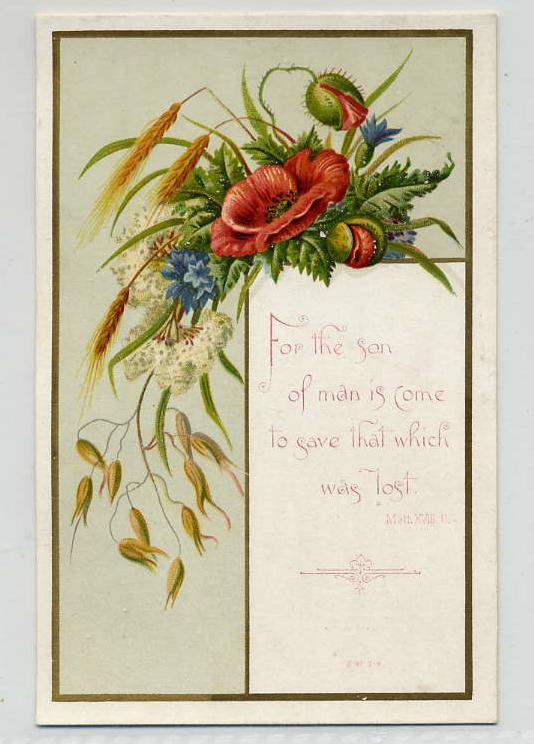 For the son
of man is come
to save that which
was lost.
Matt. XVIII. 11.